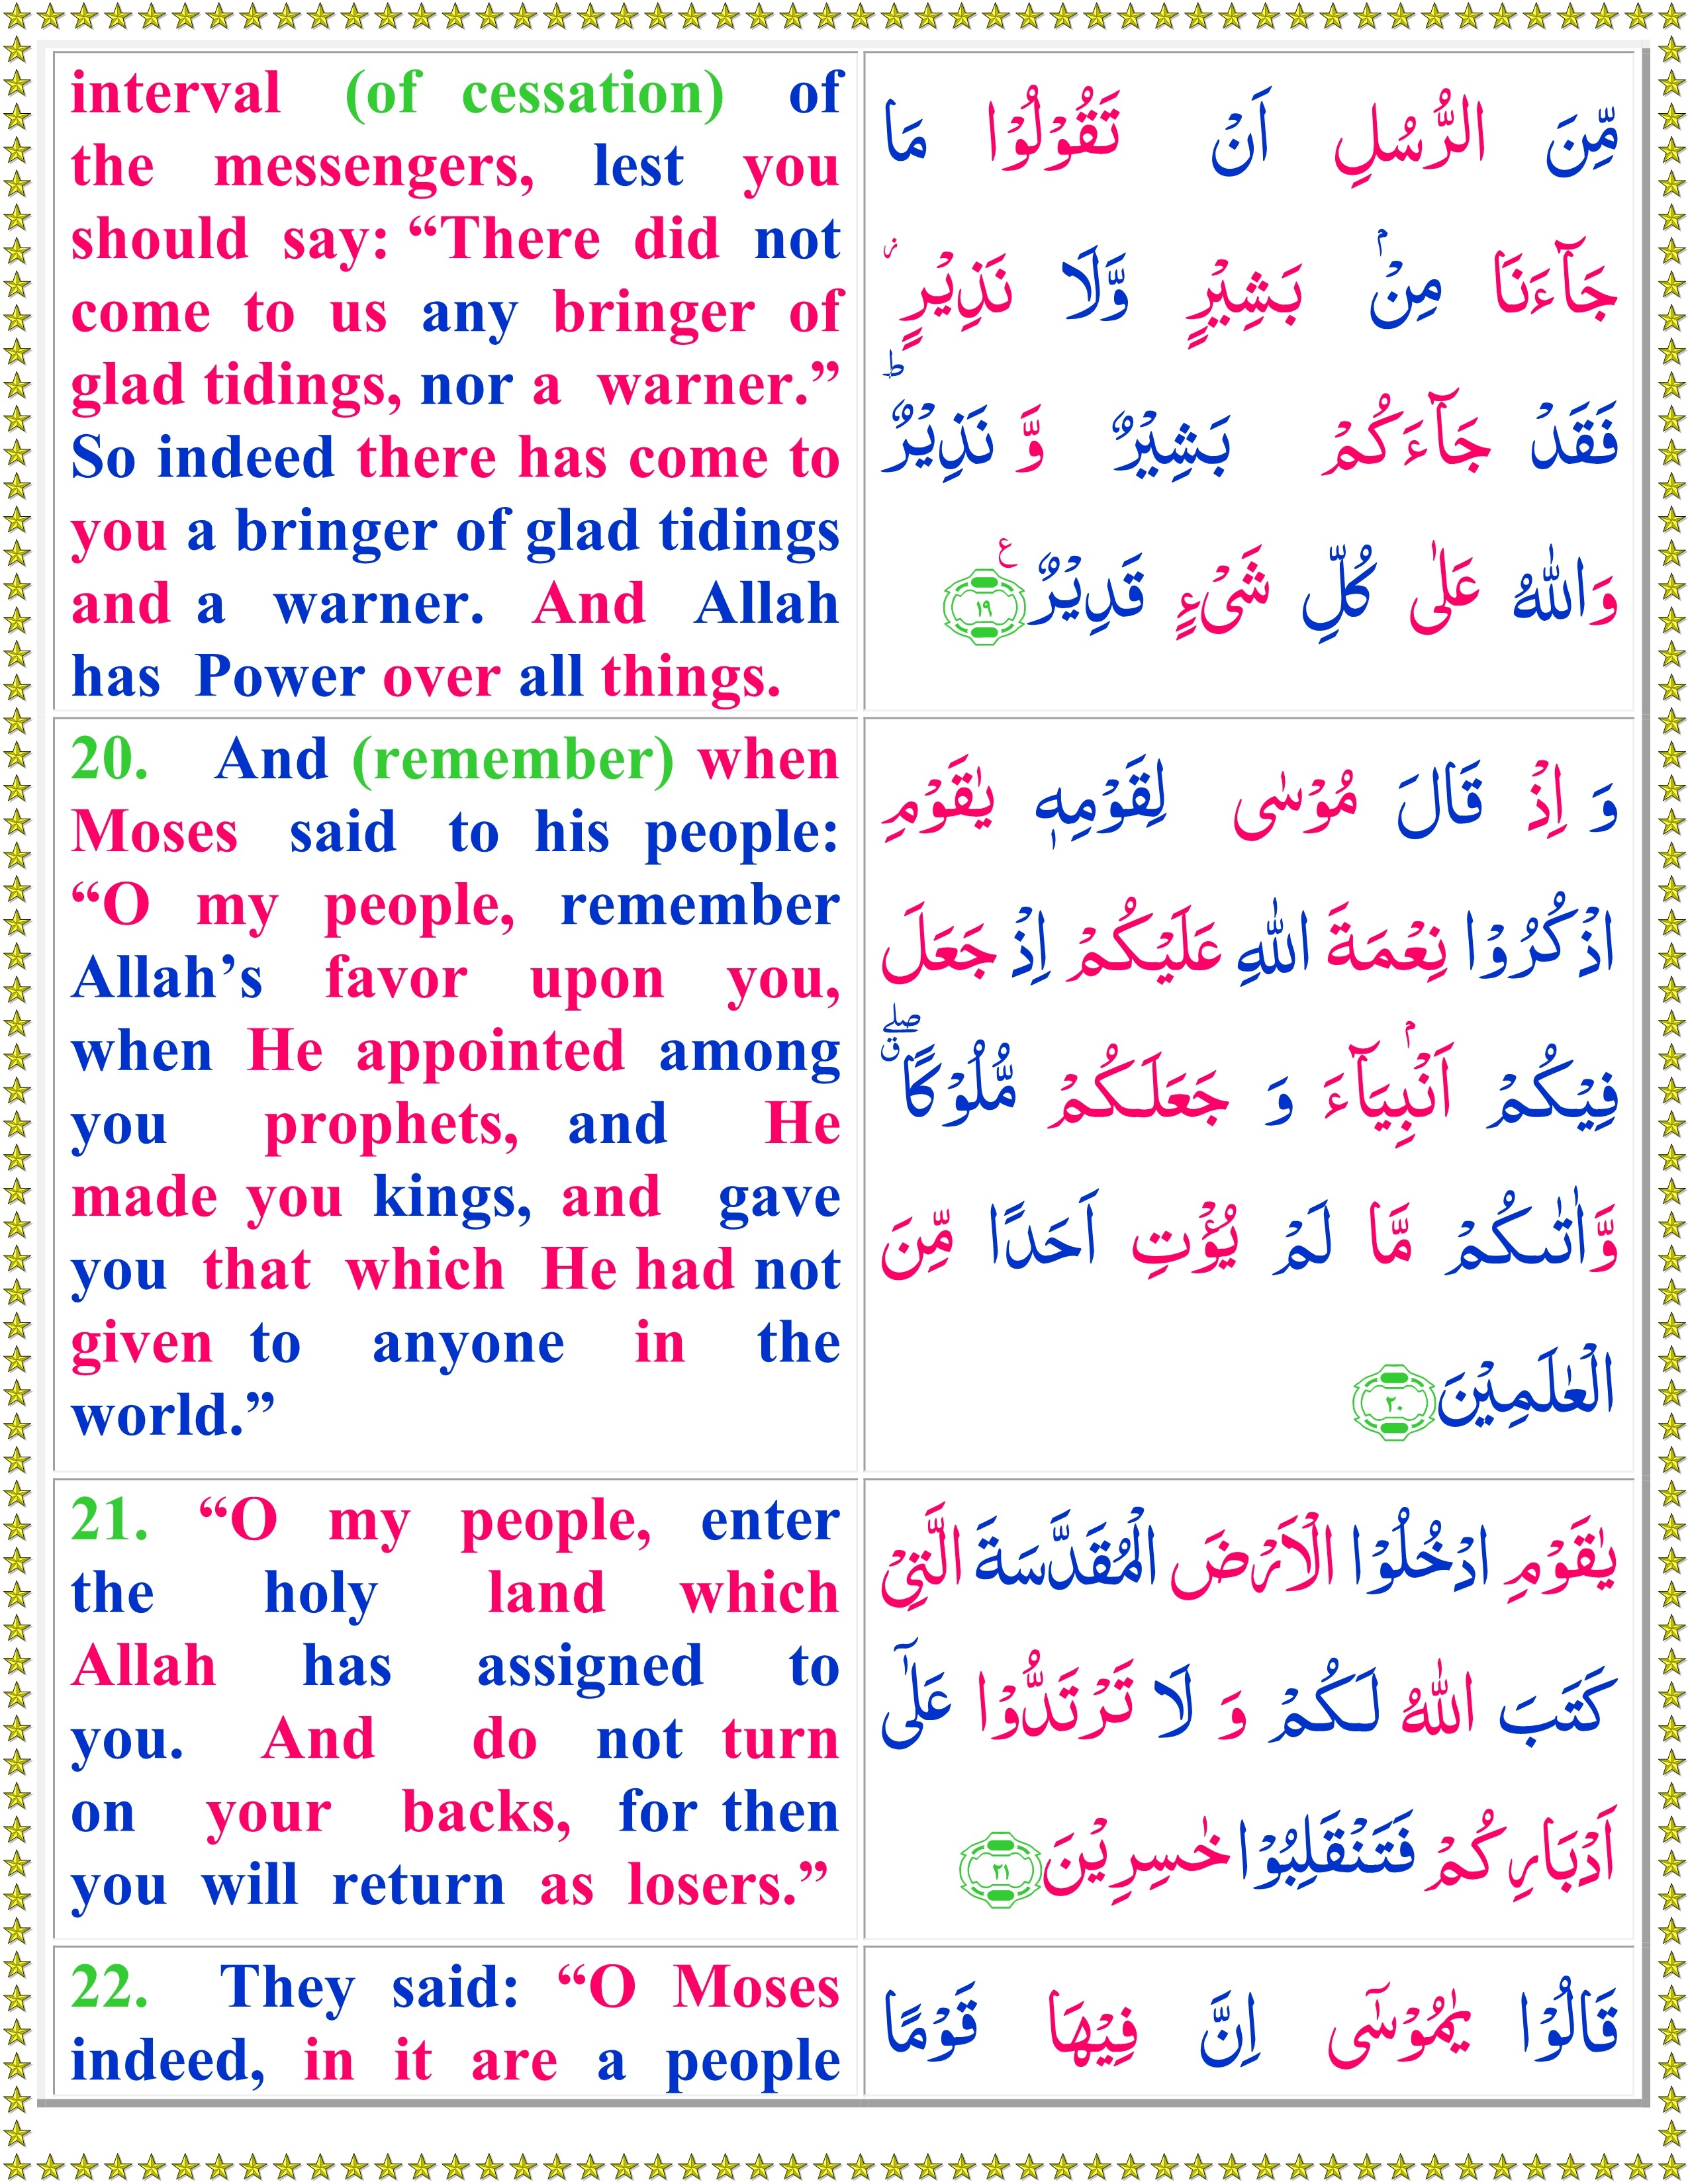 interval (of cessation) of
the messengers, lest you
should say: “There did not
come to us any bringer of
glad tidings, nor a warner.”
So indeed there has come to
you a bringer of glad tidings
and a warner. And Allah
has Power over all things.
مِّنَ الرُّسُلِ اَنْ تَقُوْلُوْا مَا
جَآءَنَا مِنْۢ بَشِيْرٍ وَّلَا نَذِيْرٍ ؗ
فَقَدْ جَآءَكُمْ بَشِيْرٌ وَّ نَذِيْرٌ ؕ
وَاللّٰهُ عَلٰى كُلِّ شَىْءٍ قَدِيْرٌ ۧ ١٩
20. And (remember) when
Moses said to his people:
“O my people, remember
Allah’s favor upon you,
when He appointed among
you prophets, and He
made you kings, and gave
you that which He had not
given to anyone in the
world.”
وَ اِذْ قَالَ مُوْسٰى لِقَوْمِهٖ يٰقَوْمِ
اذْكُرُوْا نِعْمَةَ اللّٰهِ عَلَيْكُمْ اِذْ جَعَلَ
فِيْكُمْ اَنْۢبِيَآءَ وَ جَعَلَكُمْ مُّلُوْكًا ۖۗ
وَّاٰتٰٮكُمْ مَّا لَمْ يُؤْتِ اَحَدًا مِّنَ
الْعٰلَمِيْنَ ٢٠
21. “O my people, enter
the holy land which
Allah has assigned to
you. And do not turn
on your backs, for then
you will return as losers.”
يٰقَوْمِ ادْخُلُوْا الْاَرْضَ الْمُقَدَّسَةَ الَّتِىْ
كَتَبَ اللّٰهُ لَـكُمْ وَ لَا تَرْتَدُّوْا عَلٰٓى
اَدْبَارِكُمْ فَتَنْقَلِبُوْا خٰسِرِيْنَ ٢١
22. They said: “O Moses
indeed, in it are a people
قَالُوْا يٰمُوْسٰٓى اِنَّ فِيْهَا قَوْمًا